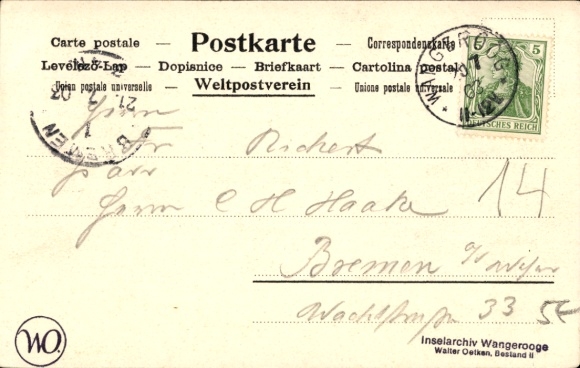 Carte postale — Postkarte — Correspondenzkarte
Levelező-Lap — Dopisnice — Briefkaart — Cartolina postale
Union postale universelle — Weltpostverein — Unione postale universale
5
DEUTSCHES REICH
WANGEROOG
11-12V
BREMEN
21.
Herrn
Fr Richert
Herrn C H Haake
14
Bremen
Wachtstraße 33
WO.
Inselarchiv Wangerooge
Walter Oetken, Bestand II